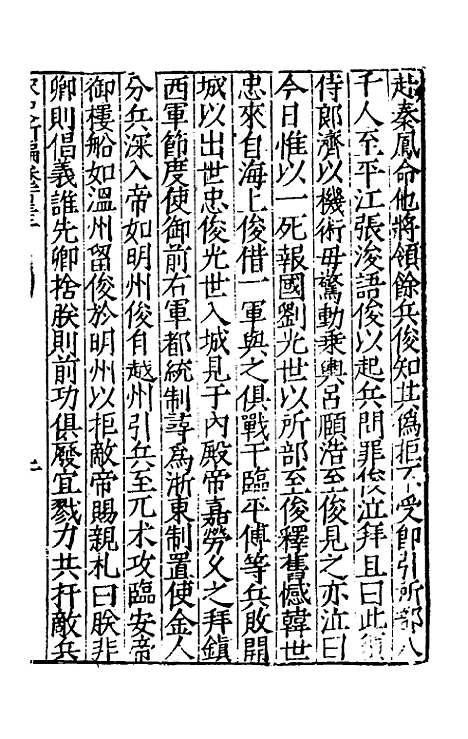 赴秦鳳命他將領餘兵俊知其爲拒不受即引所部八
千人至平江張浚語俊以起兵問罪俊泣拜且曰此須
侍郎濟以機術毋驚動乗輿呂頤浩至俊見之亦泣曰
今日惟以一死報國劉光世以所部至俊釋舊憾韓世
忠來自海上俊借一軍與之俱戰于臨平傅等兵敗開
城以出世忠俊光世入城見于內殿帝嘉勞久之拜鎮
西軍節度使御前右軍都統制尋爲浙東制置使金人
分兵深入帝如明州俊自越州引兵至兀术攻臨安帝
御樓船如溫州留俊於明州以拒敵帝賜親札曰朕非
卿則倡義誰先卿捨朕則前功俱廢宜戮力共扞敵兵